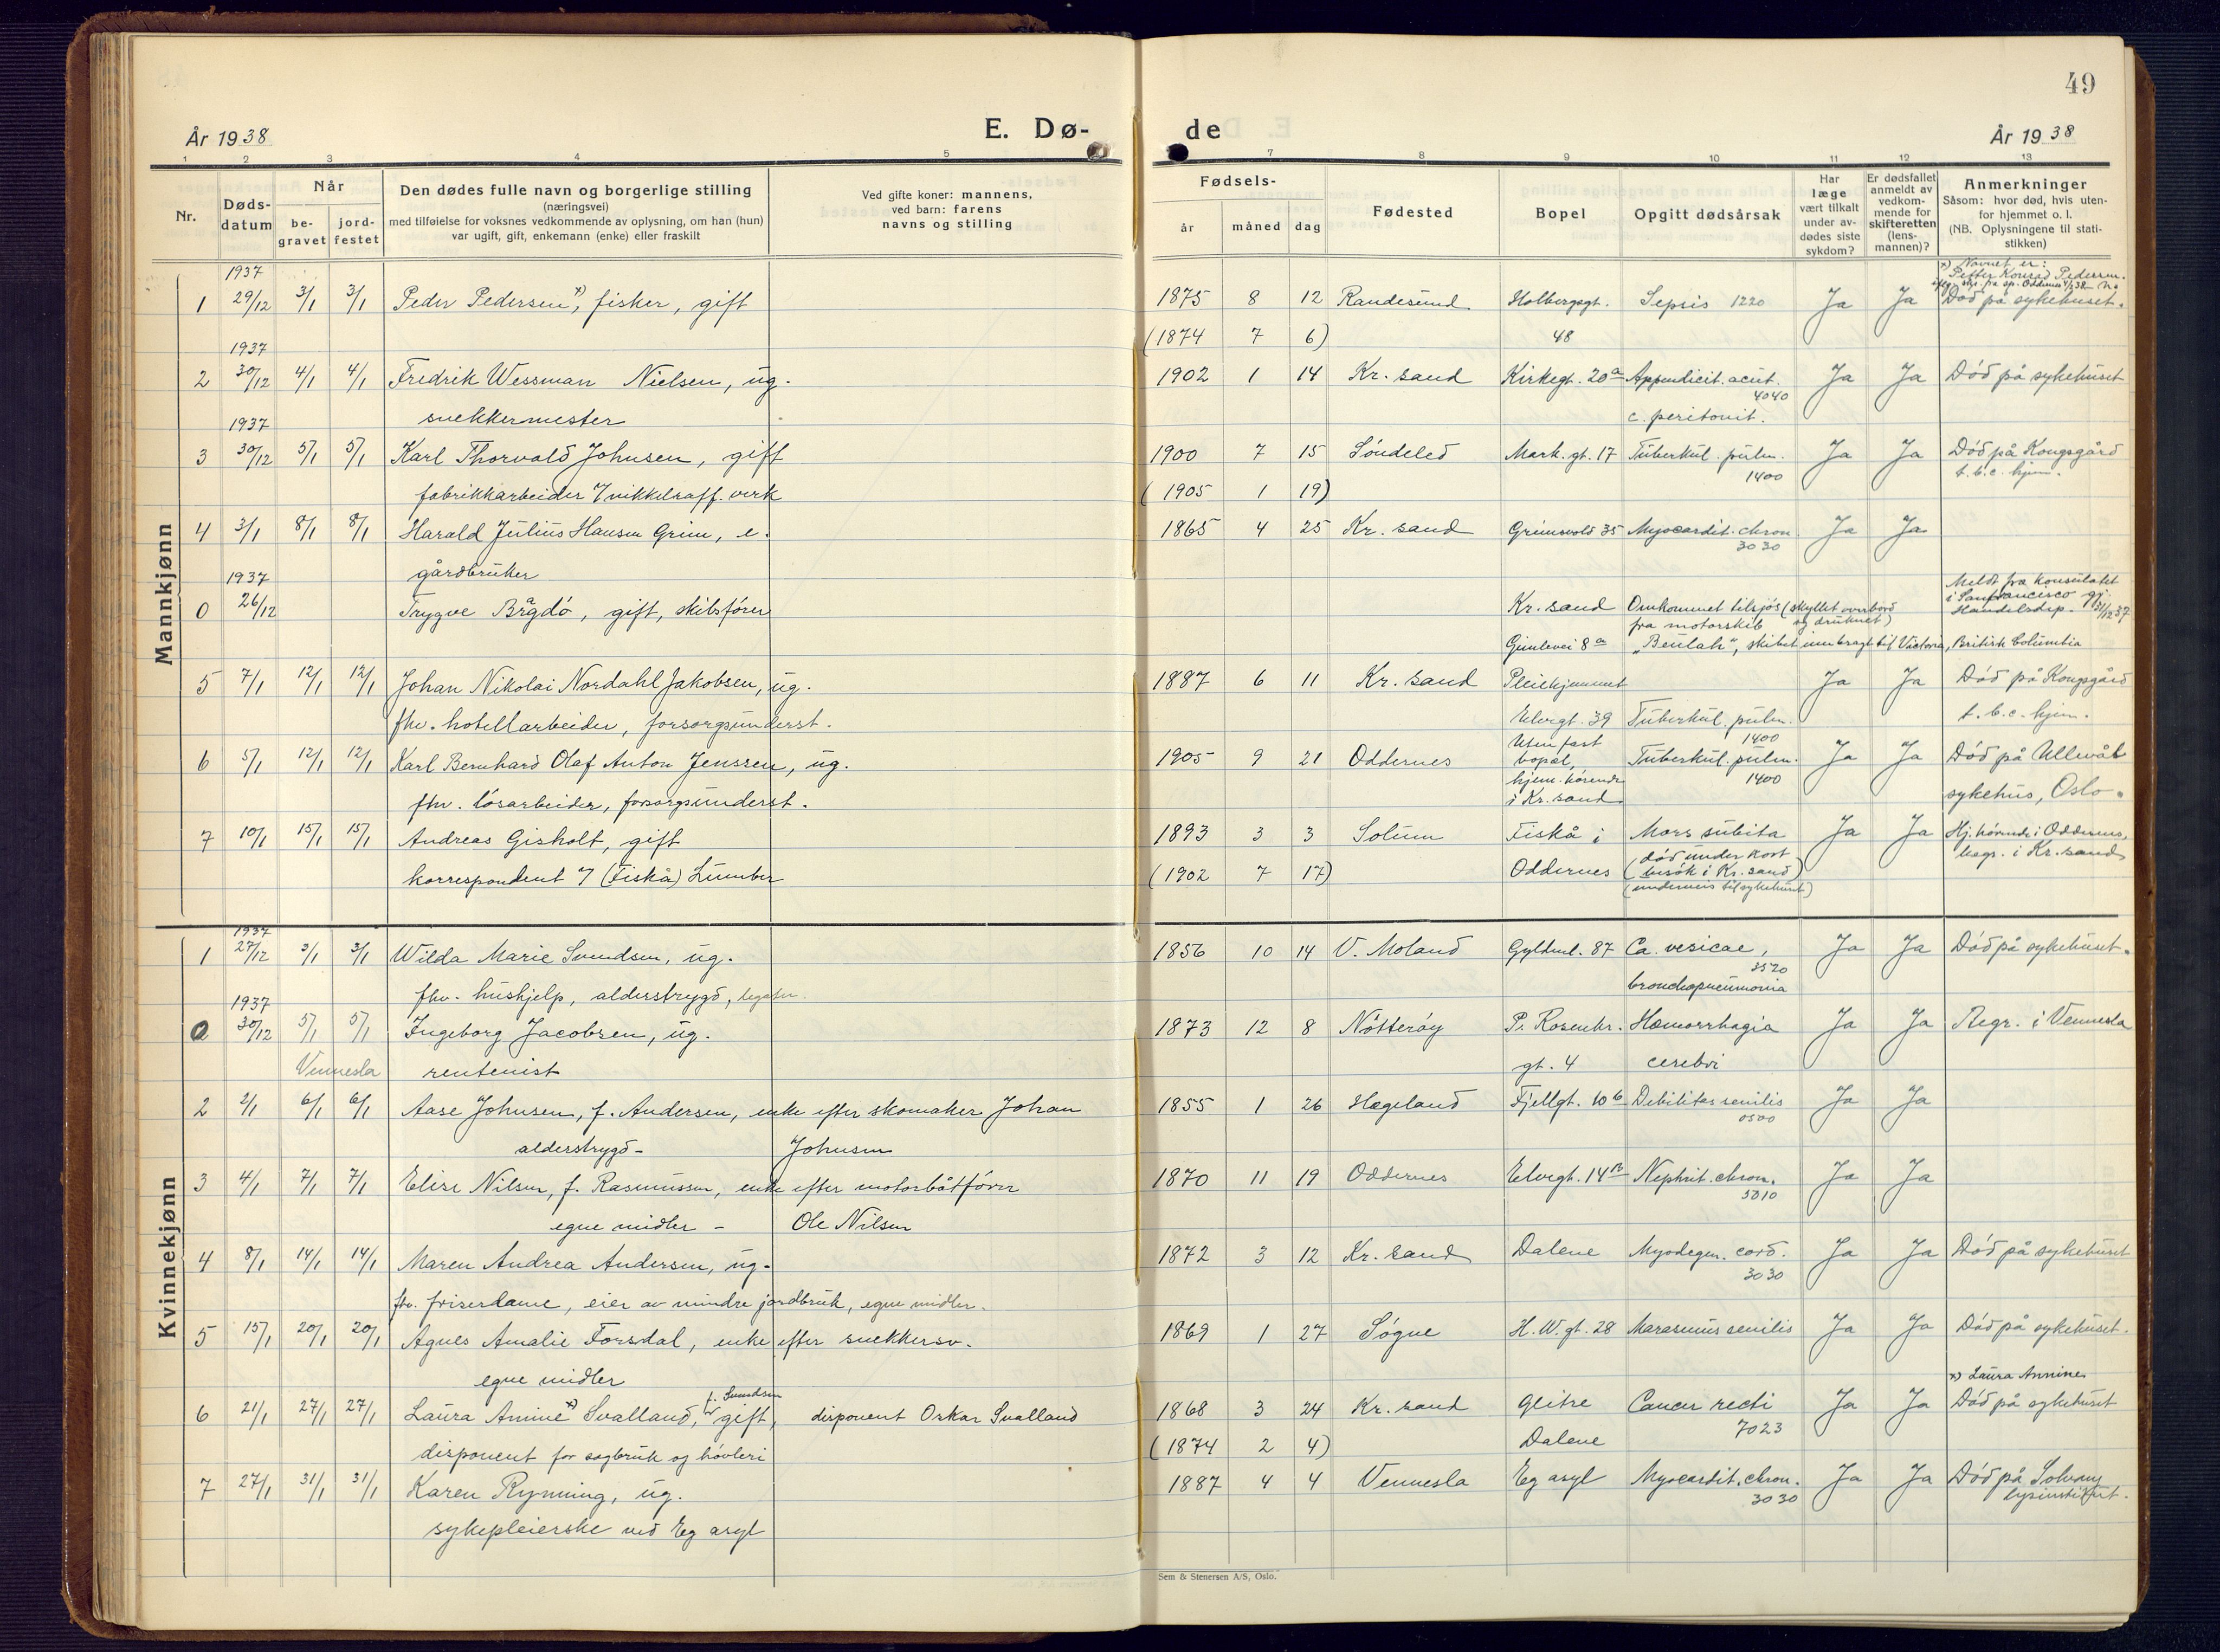 49
År 1938
E. Dø-
de
År 1938
1 2 3 4 5 7 8 9 10 11 12 13
Nr.
Døds-
datum
Når
be-
gravet
jord-
festet
Den dødes fulle navn og borgerlige stilling
(næringsvei)
med tilføielse for voksnes vedkommende av oplysning, om han (hun)
var ugift, gift, enkemann (enke) eller fraskilt
Ved gifte koner: mannens,
ved barn: farens
navns og stilling
Fødsels-
år måned dag
Fødested
Bopel
Opgitt dødsårsak
Har
læge
vært tilkalt
under av-
dødes siste
sykdom?
Er dødsfallet
anmeldt av
vedkom-
mende for
skifteretten
(lens-
mannen)?
Anmerkninger
Såsom: hvor død, hvis uten-
for hjemmet o. l.
(NB. Oplysningene til stati-
stikken)
Mannkjønn
1937
x) Navnet er:
Petter Konrad Pedersen.
1 29/12 3/1 3/1 Peder Pedersen x), fisker, gift 1875 8 12 Randesund Holbergsgt. Sepsis 1220 Ja Ja Død på sykehuset.
(1874 7 6) 48
1937
2 30/12 4/1 4/1 Fredrik Wessman Nielsen, ug. 1902 1 14 Kr. sand Kirkegt. 20a Appendicit. acut. Ja Ja Død på sykehuset
4040
snekkermester c. peritonit.
1937
3 30/12 5/1 5/1 Karl Thorvald Johnsen, gift 1900 7 15 Søndeled Mark. gt. 17 Tuberkul. pulm. Ja Ja Død på Kongsgård
1400 t.b.c. hjem.
fabrikkarbeider v/ nikkelraff. verk (1905 1 19)
4 3/1 8/1 8/1 Harald Julius Hansen Grim, e. 1865 4 25 Kr. sand Grimsvold 35 Myocardit. chron. Ja Ja
3030
gårdbruker
1937
Meldt fra konsulatet
i Sanfrancisco gj.
0 26/12 Trygve Brågdø, gift, skibsfører Kr. sand Omkommet tilsjøs (skyllet overbord Handelsdep. 31/12 37
fra motorskib og druknet)
Gimlevei 8a "Beulah", skibet innbragt til Victoria, British Columbia
5 7/1 12/1 12/1 Johan Nikolai Nordahl Jakobsen, ug. 1887 6 11 Kr. sand Pleiehjemmet Ja Ja Død på Kongsgård
fhv. hotellarbeider, forsorgsunderst. Elvegt. 39 Tuberkul. pulm. t.b.c. hjem.
1400
6 5/1 12/1 12/1 Karl Bernhard Olaf Anton Jenssen, ug. 1905 9 21 Oddernes Uten fast bopel, Tuberkul. pulm. Ja Ja Død på Ullevål
1400
fhv. løsarbeider, forsorgsunderst. hjem. hørende i Kr. sand sykehus, Oslo.
7 10/1 15/1 15/1 Andreas Gisholt, gift 1893 3 3 Solum Fiskå i Mors subita Ja Ja Hj. hørende i Oddernes,
begr. i Kr. sand
korrespondent v/ (Fiskå) Lumber (1902 7 17) Oddernes (død under kort
besøk i Kr. sand)
(underveis til sykehuset)
Kvinnekjønn
1937
1 27/12 3/1 3/1 Wilda Marie Svendsen, ug. 1856 10 14 V. Moland Gyldenl. 87 Ca. vesicae, Ja Ja Død på sykehuset.
fhv. hushjelp, alderstrygd, bronchopneumonia
1937
0 30/12 5/1 5/1 Ingeborg Jacobsen, ug. 1873 12 8 Nøtterøy P. Rosenkr. Hæmorrhagia Ja Ja Begr. i Vennesla
Vennesla rentenist gt. 4 cerebri
2 2/1 6/1 6/1 Aase Johnsen, f. Andersen, enke efter skomaker Johan 1855 1 26 Hægeland Fjellgt. 10b Debilitas senilis Ja Ja
0500
alderstrygd - Johnsen
3 4/1 7/1 7/1 Elise Nilsen, f. Rasmussen, enke efter motorbåtfører 1870 11 19 Oddernes Elvegt. 14B Nephrit. chron. Ja Ja
5010
egne midler - Ole Nilsen
4 8/1 14/1 14/1 Maren Andrea Andersen, ug. 1872 3 12 Kr. sand Dalene Myodegen. cord. Ja Ja Død på sykehuset
3030
fhv. friserdame, eier av mindre jordbruk, egne midler.
5 15/1 20/1 20/1 Agnes Amalie Forsdal, enke efter snekkersv. 1869 1 27 Søgne H. W. gt. 28 Marasmus senilis Ja Ja Død på sykehuset.
egne midler
x) Laura Annine
f. Svendsen
6 21/1 27/1 27/1 Laura Amine x) Svalland, gift, disponent Oskar Svalland 1868 3 24 Kr. sand Gleitre Cancer recti Ja Ja Død på sykehuset
7023
disponent for sagbruk og høvleri (1874 2 4) Dalene
7 27/1 31/1 31/1 Karen Rynning, ug. 1887 4 4 Vennesla Eg asyl Myocardit. chron. Ja Ja Død på Solvang
3030 lysinstitut.
sykepleierske ved Eg asyl
Sem & Stenersen A/S, Oslo.